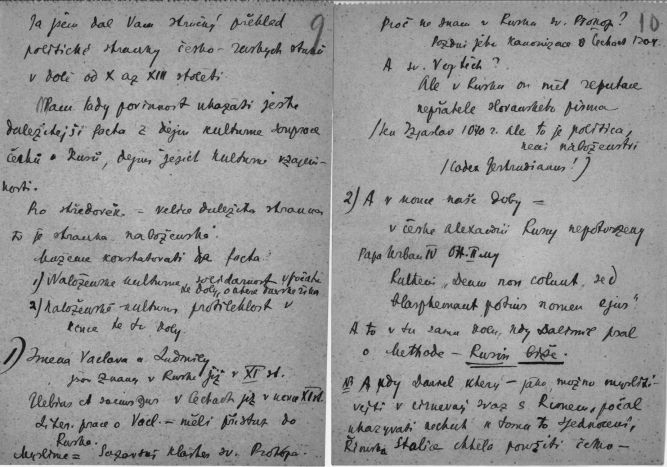 9
Ja jsem dal Vam stručný přehled
politické stranky česko-ruskych styků
v dobi od X až XIII stoleti.
Mam tady povinnost ukazati jeste
duležitejší fakta z dejin kulturne
Čechů a Rusů, dejin jejich kulturni vzajem-
nosti.
Pro středověk - velice duležita stranka
to je stranka naboženska.
Mužeme konstatovati fakta:
1) Naboženske kulturne solidarnost v počatku
te doby,
2) naboženske-kulturni protilehlost v
konce te to doby.
1) Jmena Vaclava a Ludmily
jsou znamy v Rusku již v XI st.
v Čechach již v konce XI st.
Liter. prace o Vacl. - měli přistup do
Ruska.
Myslime = Sazavský klašter sv. Prokopa.
10
Proč ne znam v Rusku sv. Prokop?
Pozdni jeho kanonizace v Čechach 1204.
A sv. Vojtěch?
Ale v Rusku on měl reputace
nepřatele slovanskeho pisma
Izjaslav 1070 r. ale to je politica,
neni naboženstvi
(Codex Gertrudianus!)
2) A v konce naše doby =
v česke Alexandrii Rusy nepotvrzeny
Papa Urban IV Ott. II-mu
Rutheni "Deum non colunt, sed
blasphemant potius nomen ejus"
A to v tu samu dobu, kdy Dalemil psal
o Methode - Rusin bieše.
NB A kdy Daniel který - jako, možno mysliti -
vejíti v cirkevný svaz s Rimem, počal
ukazyvati nechut k tomu to sjednoceni,
Řimska Stolice chtela použiti česko-